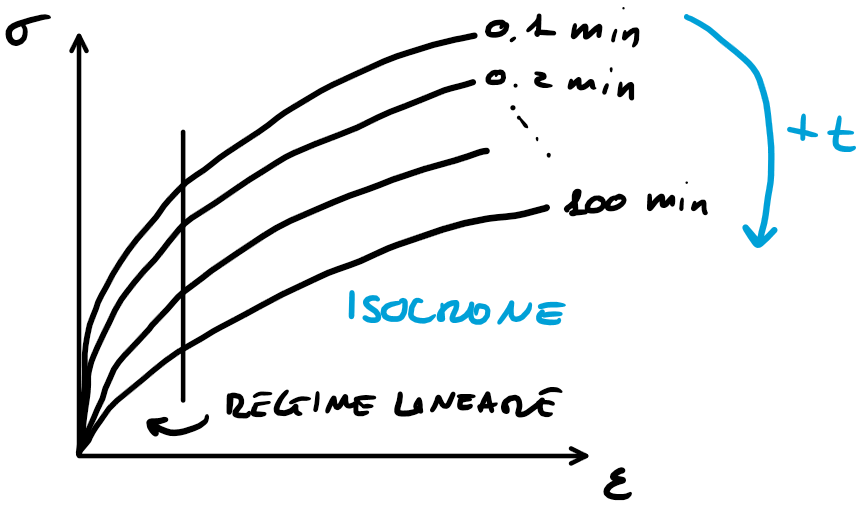 σ
0.1 min
0.2 min
+ t
100 min
ISOCRONE
REGIME LINEARE
ε